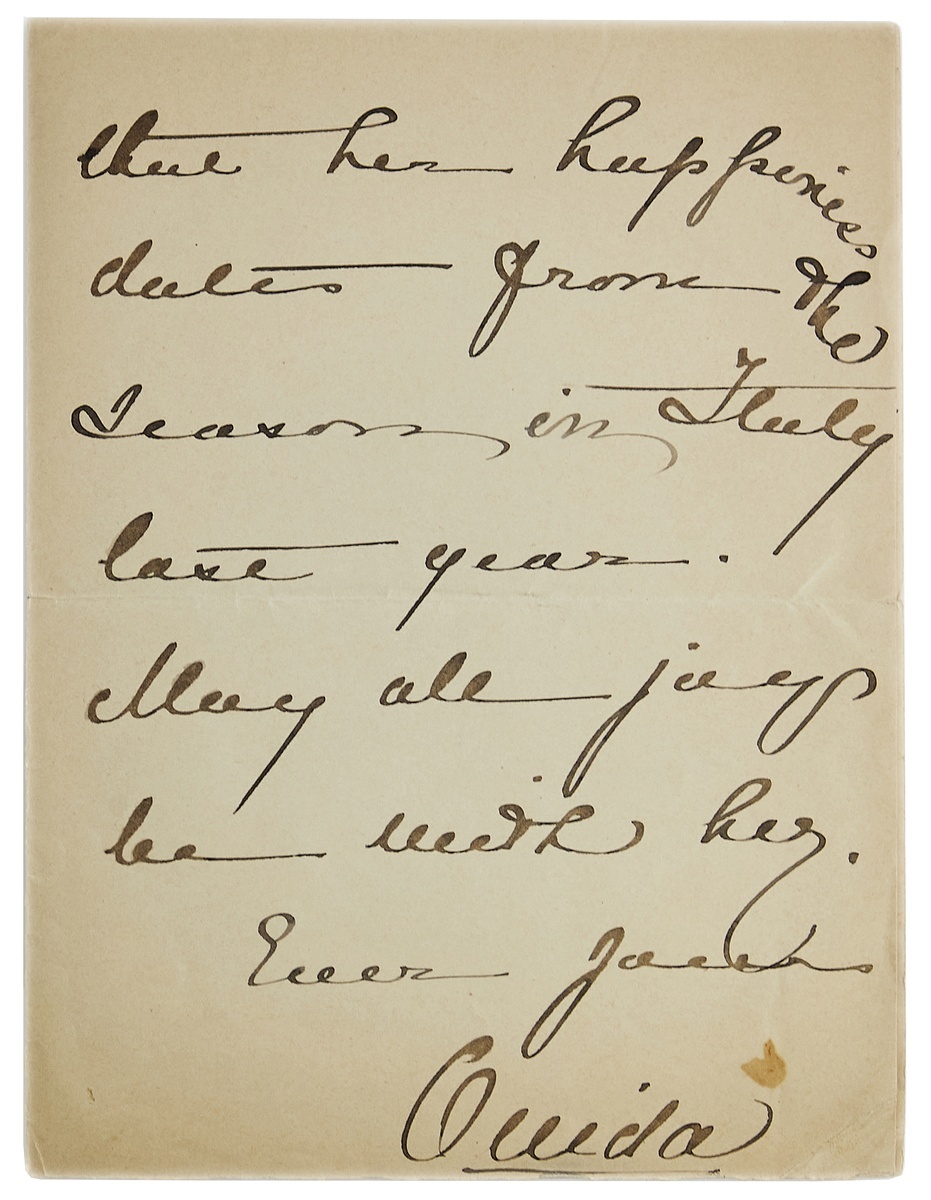 that her happiness
dates from the
season in Italy
last year.
May all joys
be with her.
Ever yours
Ouida